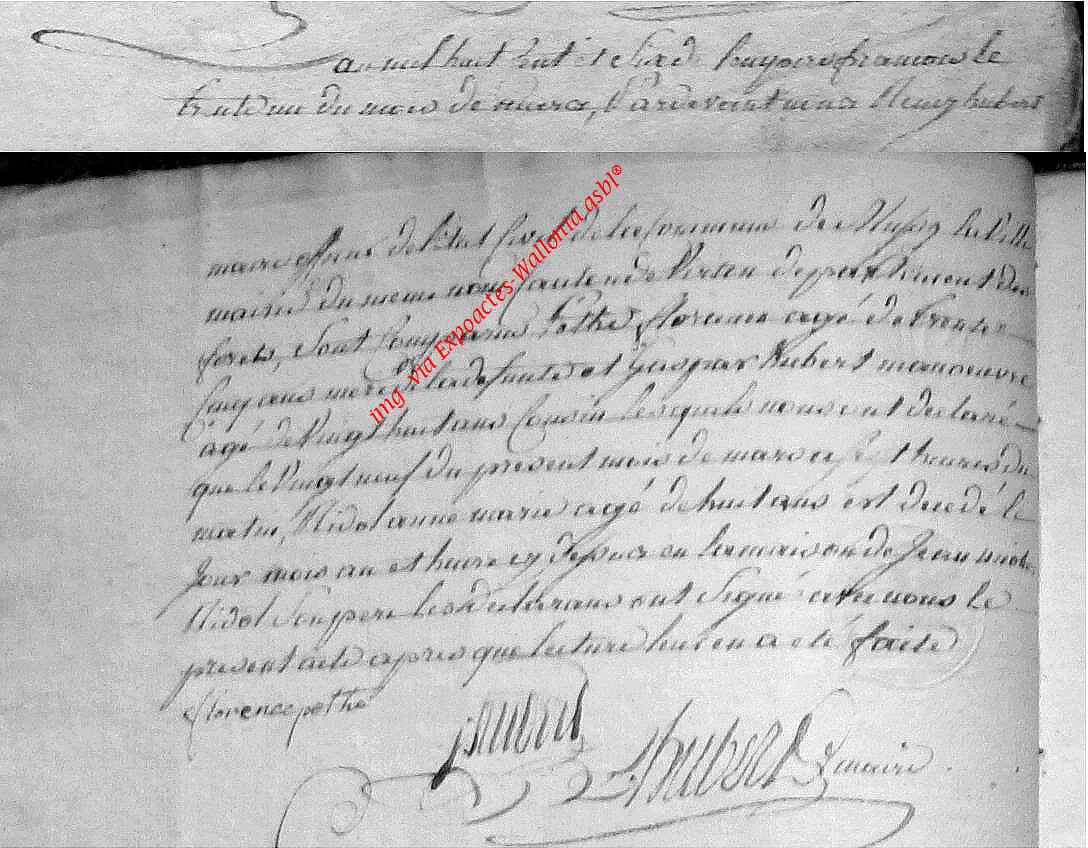 an mil huit cent et six de l'empire francois le
trente un du mois de mars, Pardevant nous Henry hubert
maire officier de l'état Civil de la Commune de Musson la Ville
mairie du meme nom Canton de Virton departement des
forets, Sont Comparus Pothé florence agé de trente
Cinq ans mere de la defunte et Gaspar Hubert manoeuvre
âgé de Vingt huit ans Cousin lesquels nous ont declaré
que le Vingt neuf du present mois de mars a sept heures du
matin, Nidol anne marie agé de huit ans est decedé le
Jour mois an et heure cy dessus en la maison de Jean nicolas
Nidol Son pere les declarans ont Signé avec nous le
present acte apres que lecture leur en a eté faite
florence pothé
hubert
hubert maire
img via Expoactes-Wallonia asbl®